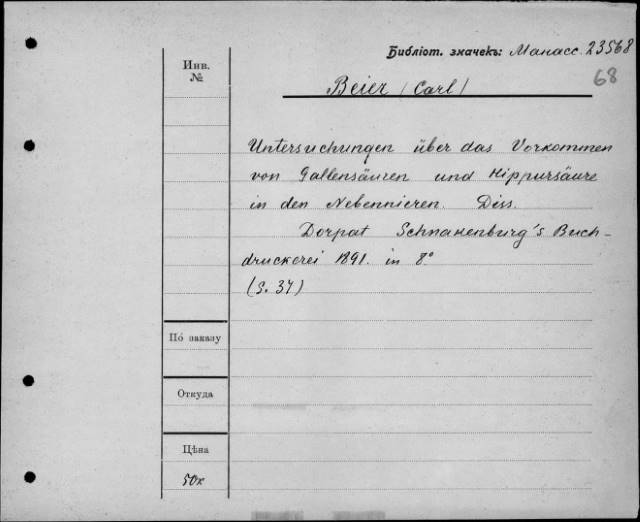 Библіот. значекъ: Манасс. 23568
68
Инв.
№
Beier (Carl)
Untersuchungen über das Vorkommen
von Gallensäuren und Hippursäure
in den Nebennieren Diss.
Dorpat Schnakenburg's Buch-
druckerei 1891. in 8°
(S. 37)
По заказу
Откуда
Цѣна
50к